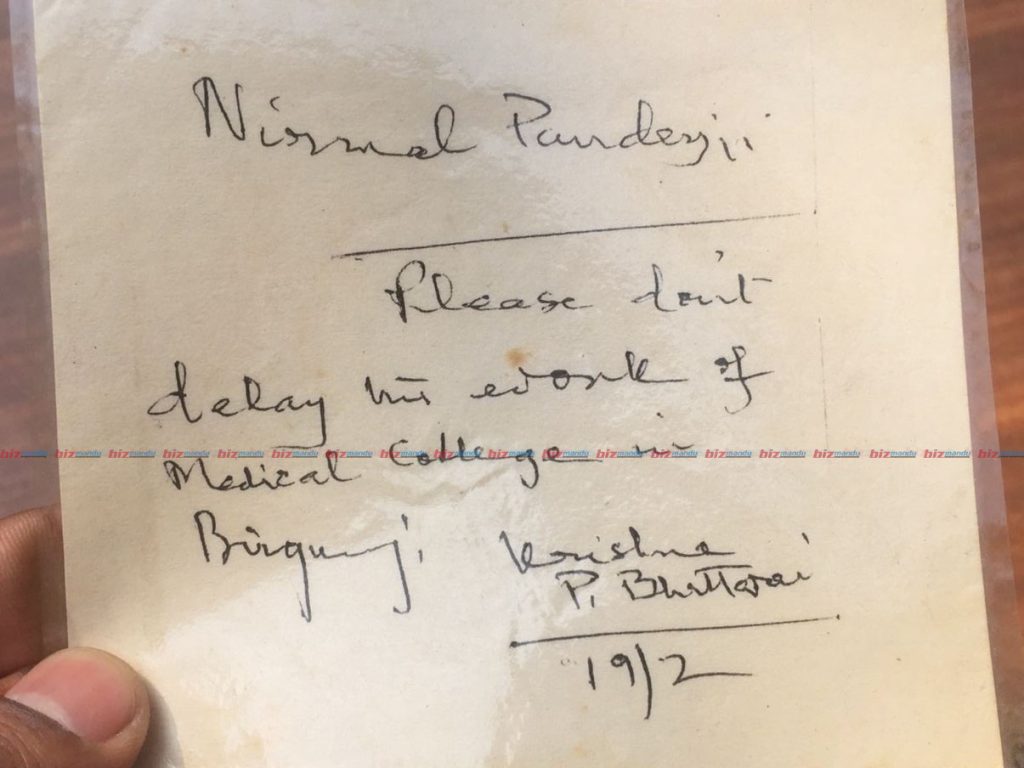 Nirmal Pandeyji
Please don't
delay his work of
Medical College in
Birgunj.
Krishna
P. Bhattarai
19/2
bizmandu bizmandu bizmandu bizmandu bizmandu bizmandu bizmandu bizmandu bizmandu bizmandu bizmandu bizmandu bizmandu bizmandu bizmandu bizmandu bizmandu bizmandu bizmandu